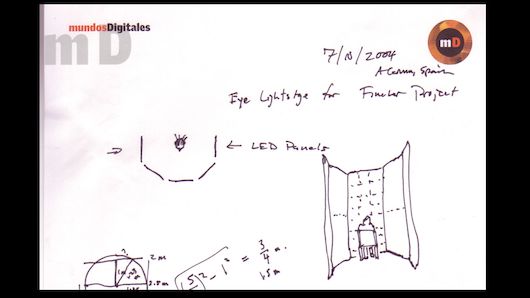 mundosDigitales
mD
mD
7/10/2004
A Coruna, Spain
Eye Lightstge for Fincher Project
LED Panels
2 m
5² - 1² = 3/4 m.
1.5 m